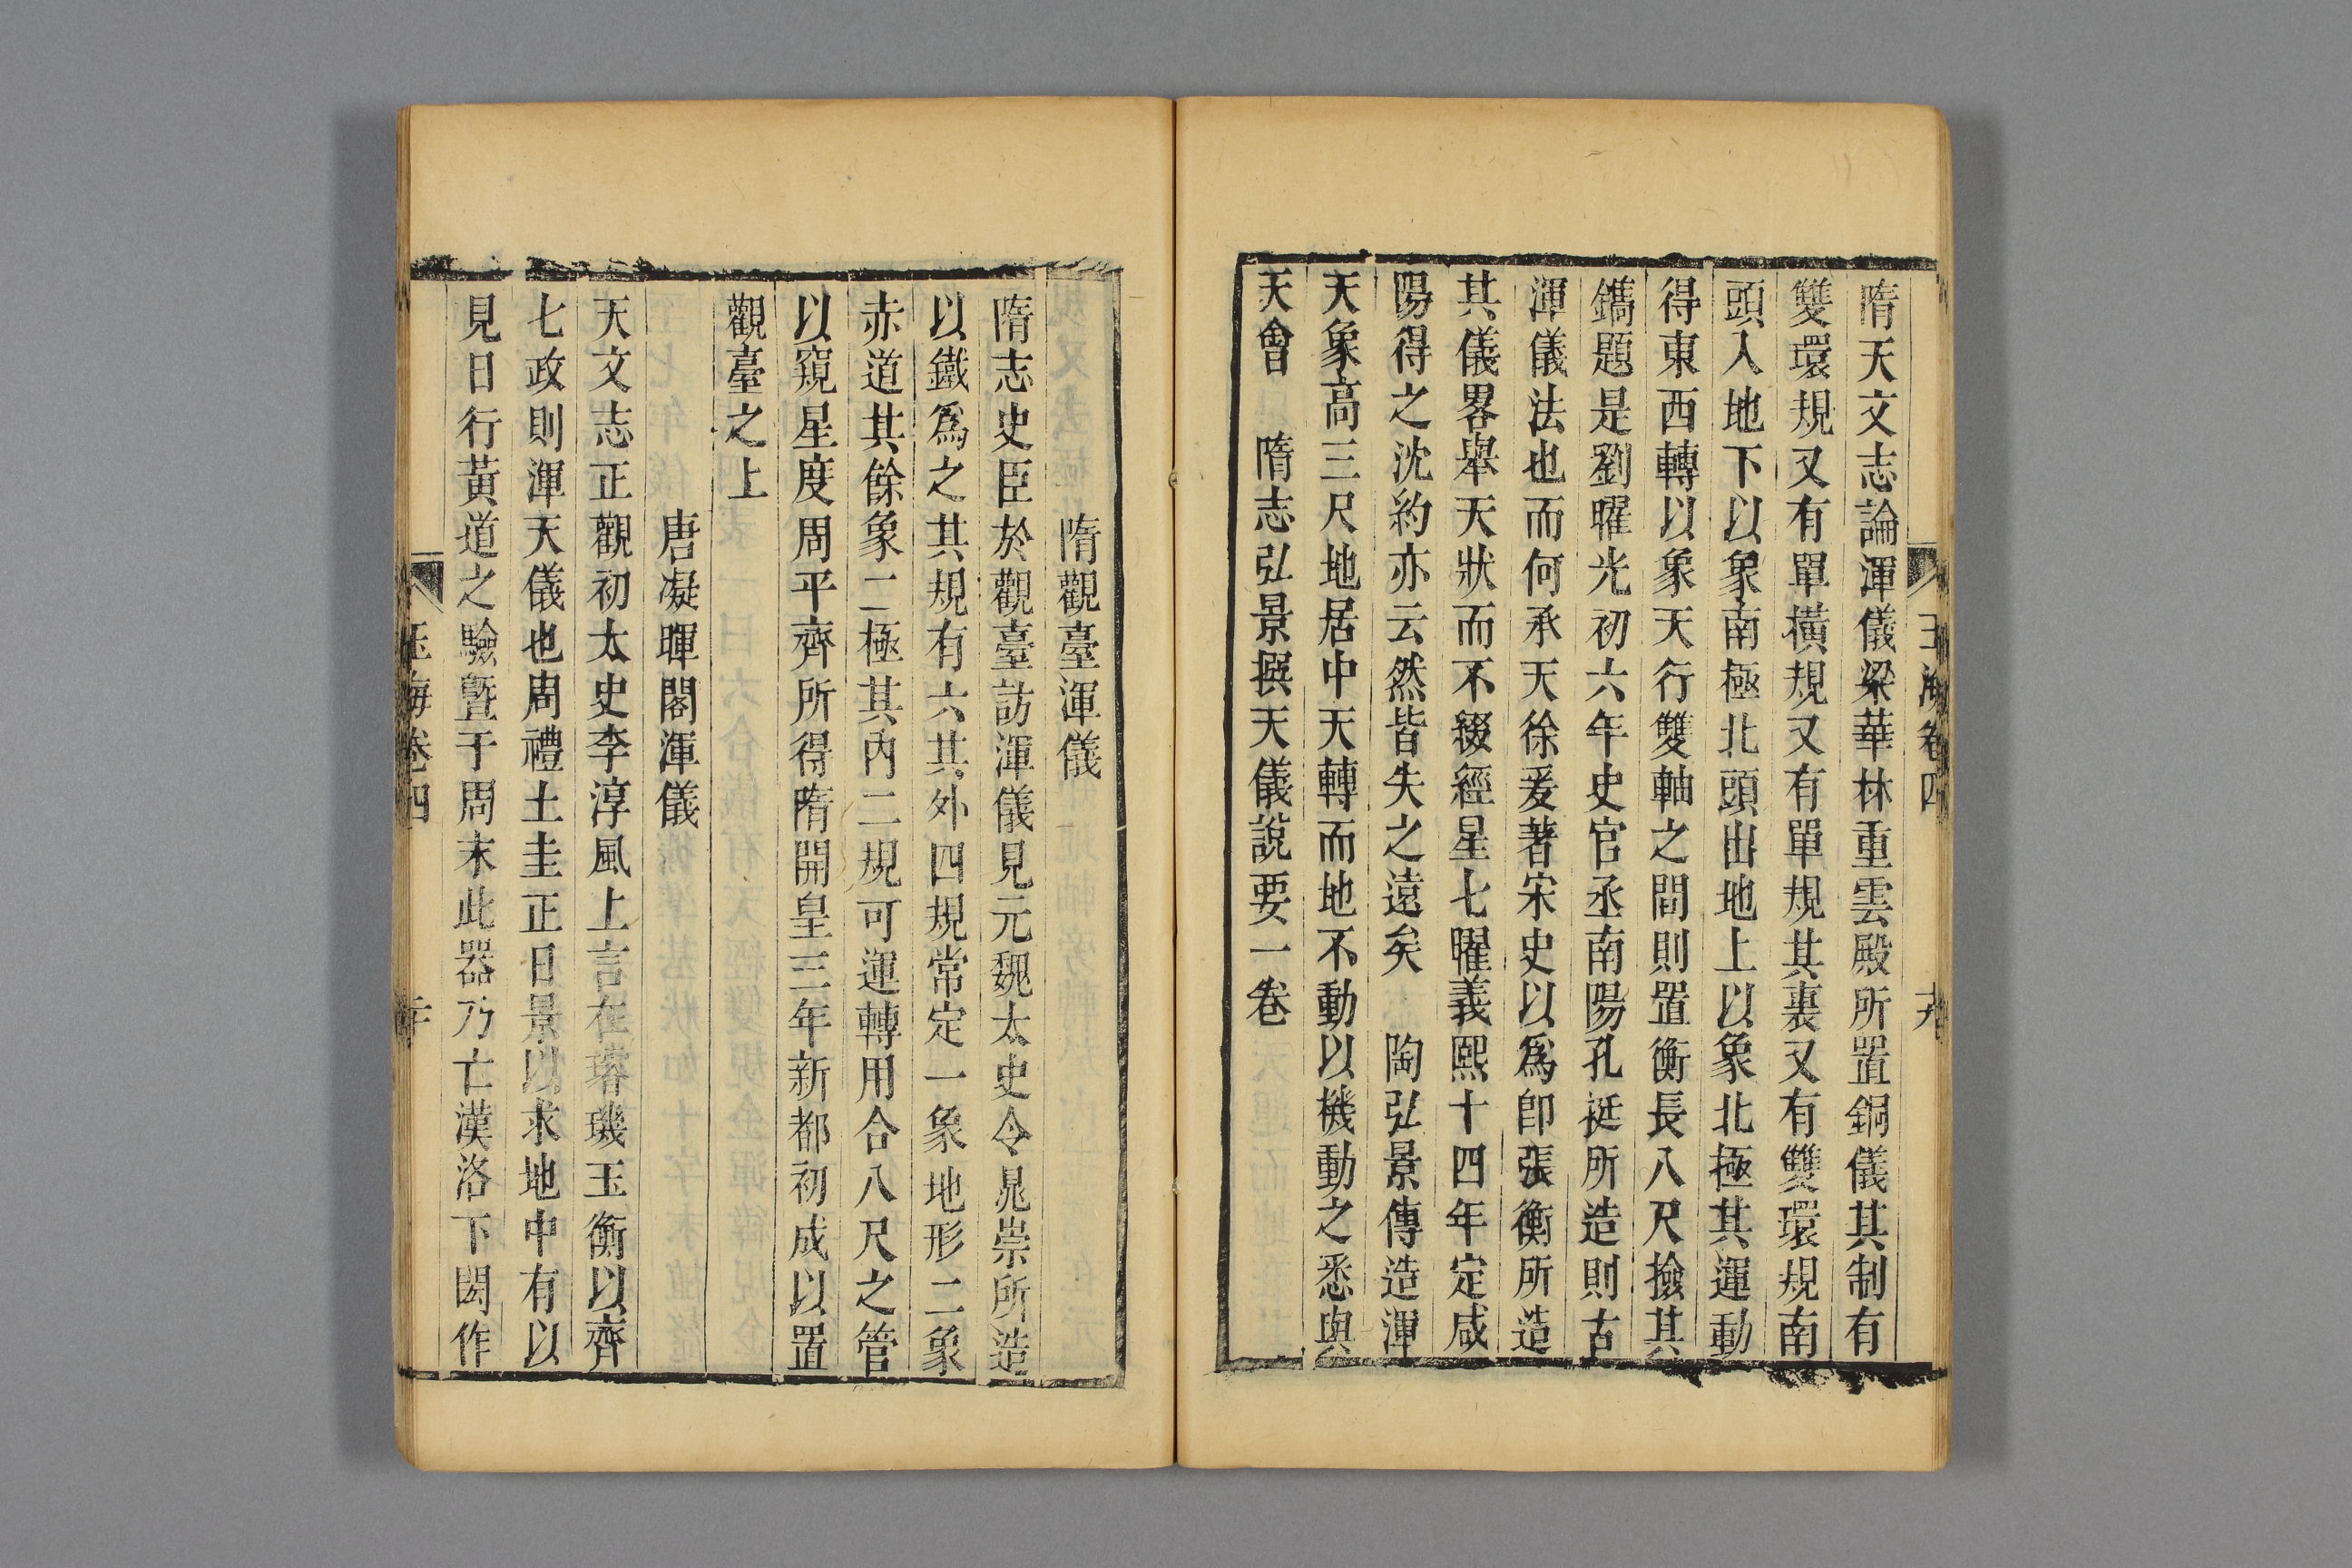 玉海卷四 十九
隋天文志論渾儀梁華林重雲殿所置銅儀其制有
雙環規又有單橫規又有單規其裏又有雙環規南
頭入地下以象南極北頭出地上以象北極其運動
得東西轉以象天行雙軸之間則置衡長八尺撿其
鐫題是劉曜光初六年史官丞南陽孔挻所造則古
渾儀法也而何承天徐爰著宋史以爲卽張衡所造
其儀畧舉天狀而不綴經星七曜義熙十四年定咸
陽得之沈約亦云然皆失之遠矣 陶弘景傳造渾
天象高三尺地居中天轉而地不動以機動之悉與
天會 隋志弘景撰天儀說要一卷
隋觀臺渾儀
隋志史臣於觀臺訪渾儀見元魏太史令晁崇所造
以鐵爲之其規有六其外四規常定一象地形二象
赤道其餘象二極其內二規可運轉用合八尺之管
以窺星度周平齊所得隋開皇三年新都初成以置
觀臺之上
唐凝暉閣渾儀
天文志正觀初太史李淳風上言在璿璣玉衡以齊
七政則渾天儀也周禮土圭正日景以求地中有以
見日行黃道之驗曁于周末此器乃亡漢洛下閎作
玉海卷四 二十